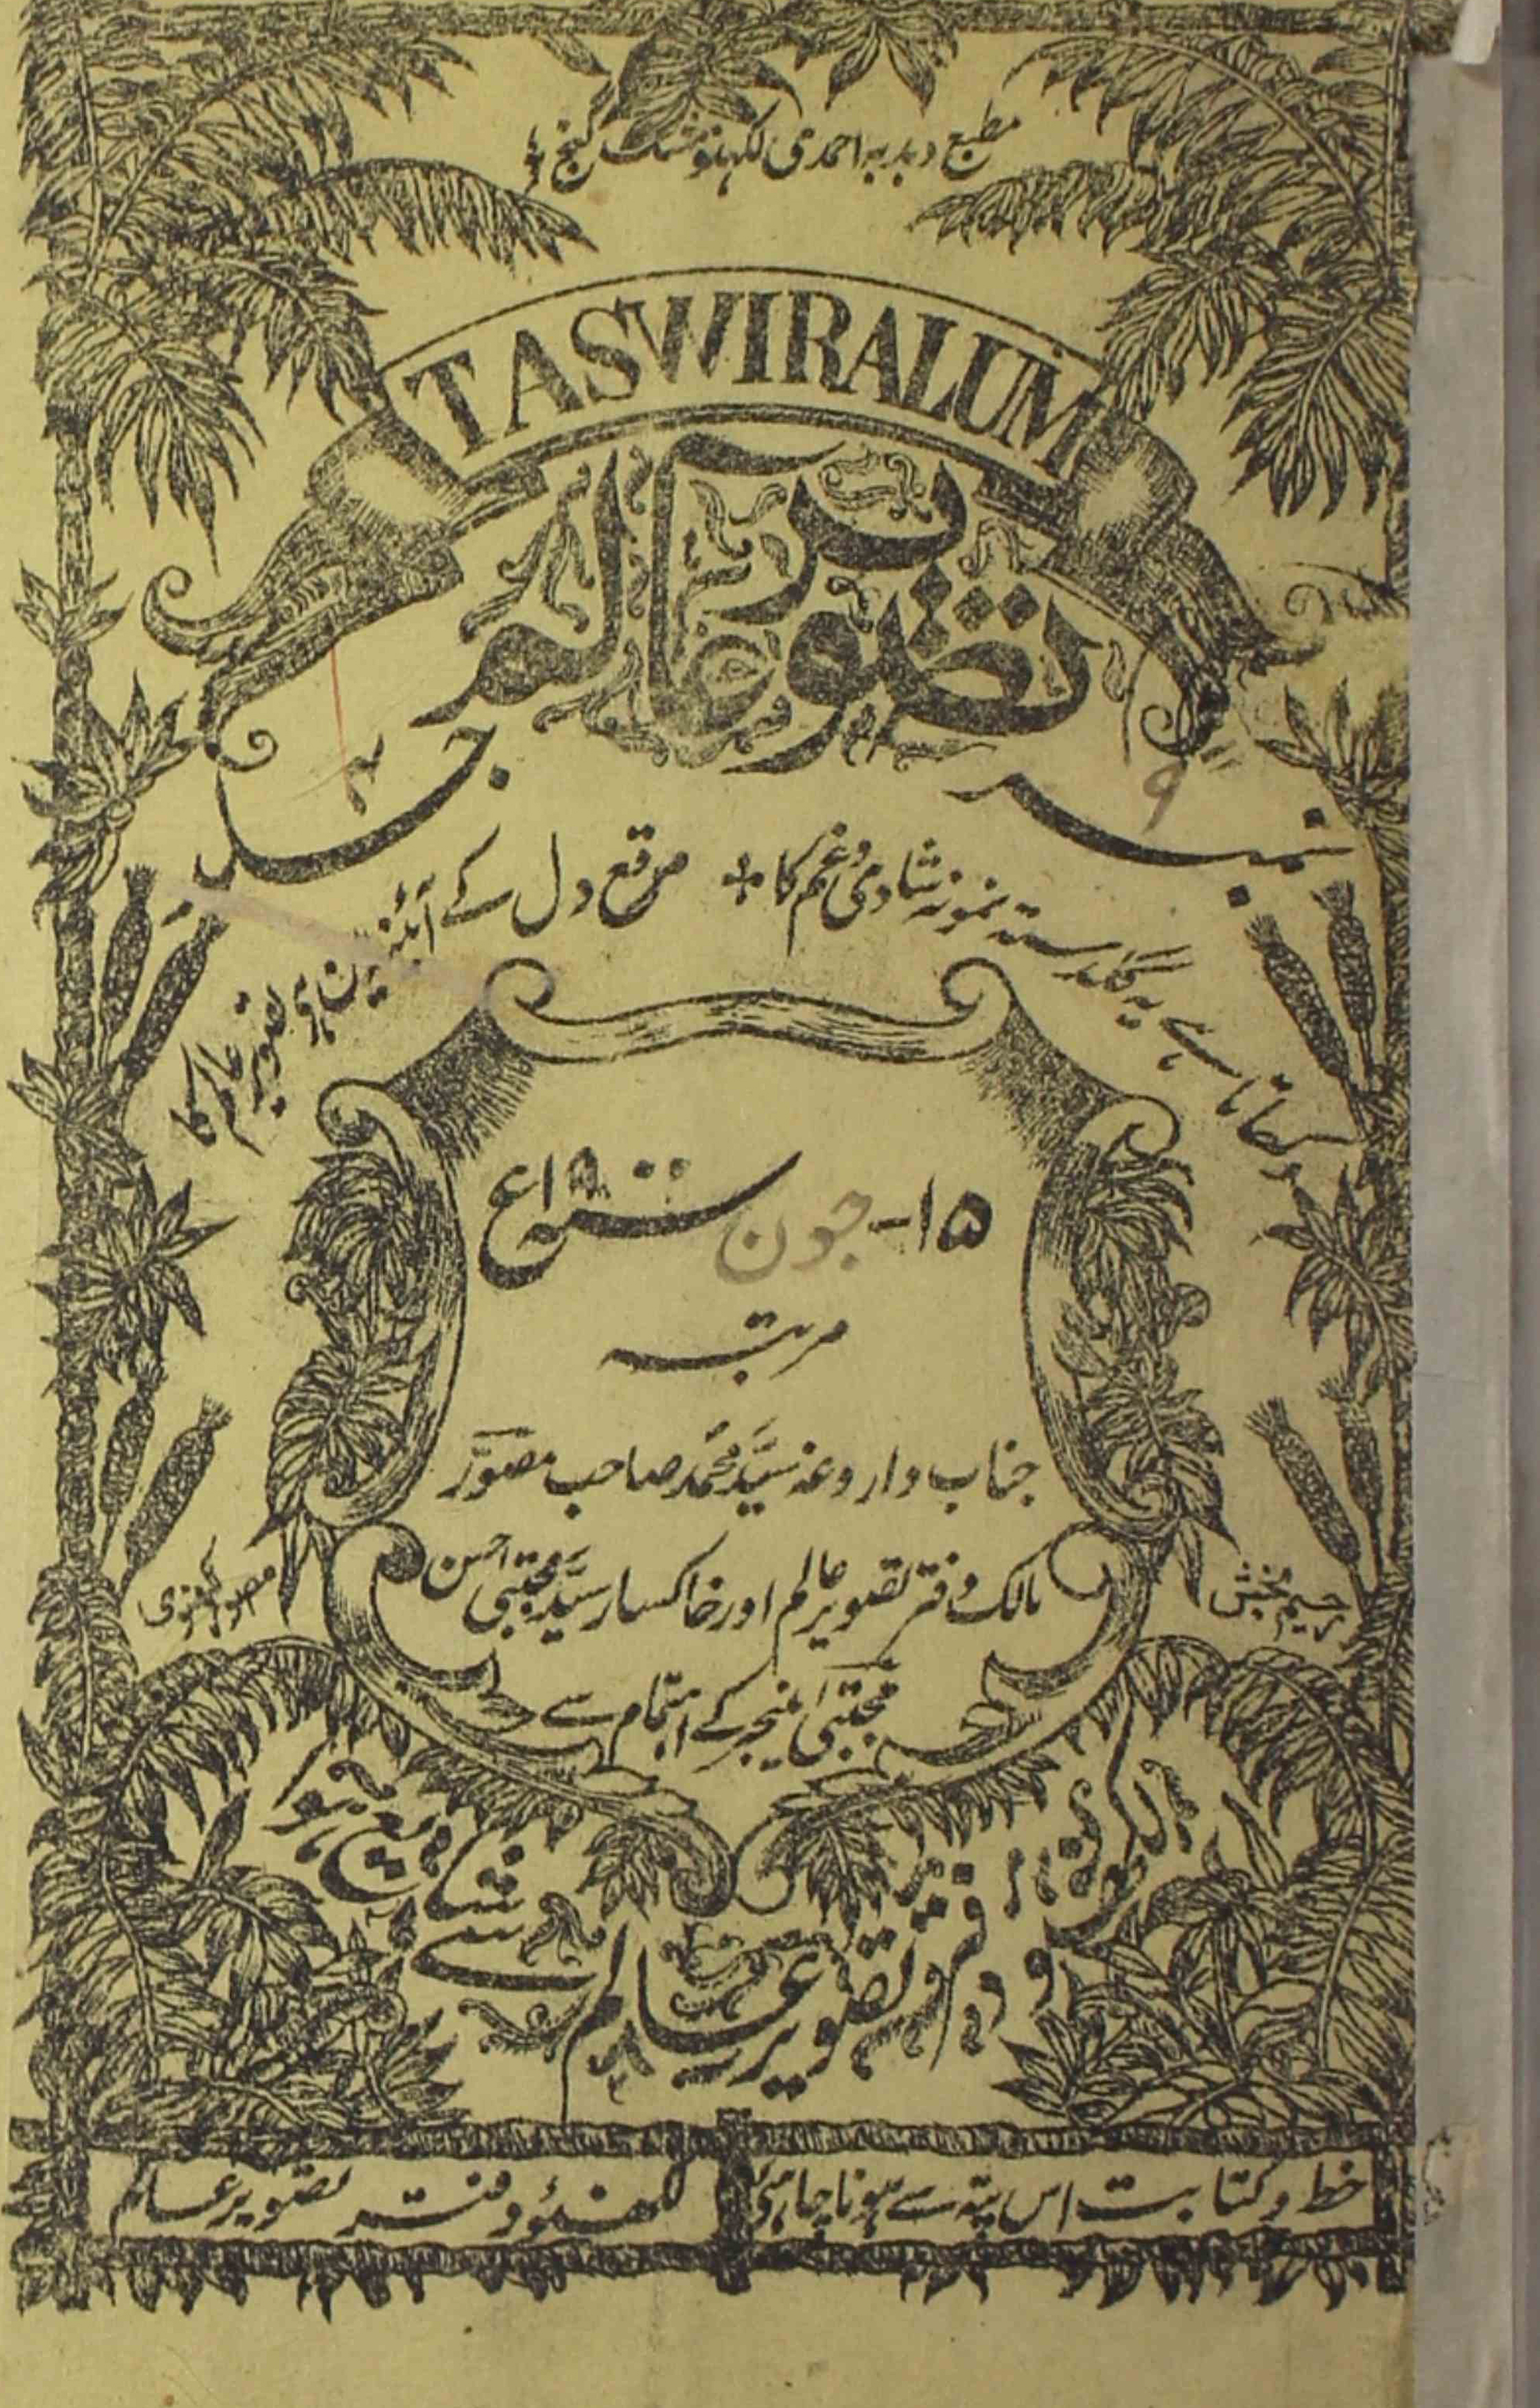 مطبع دبدبہ احمدی لکھنؤ مشک گنج
TASWIRALUM
تصویر عالم
نمبر ۹ جلد ۴
دکھاتا ہے یہ گلدستہ نمونہ شادی و غم کا + مرقع دل کے آئنہ میں ہے تصویر عالم کا
۱۵- جون سنہ ۱۹ء
مرتبہ
جناب داروغہ سید محمد صاحب مصور
مالک دفتر تصویر عالم اور خاکسار سید مجتبیٰ احسن
مجتبیٰ منیجر کے اہتمام سے
رحیم بخش
مصور لکھنوی
دفتر تصویر عالم سے شایع ہوا
خط و کتابت اس پتہ سے ہونا چاہئے لکھنؤ دفتر تصویر عالم